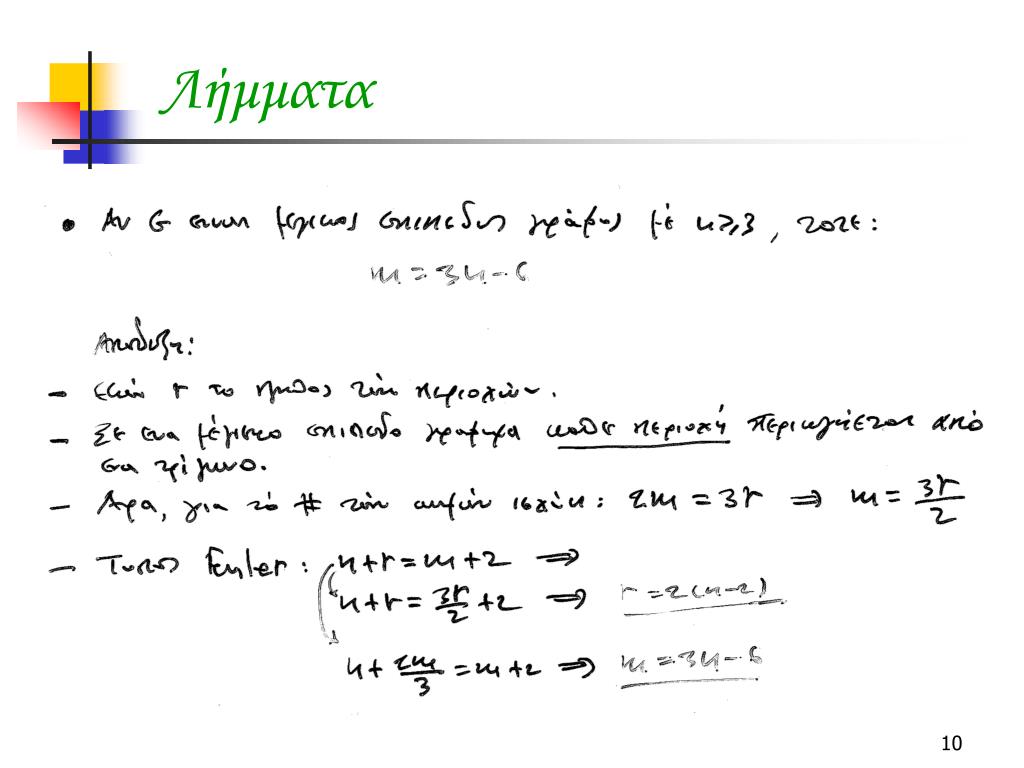 Λήμματα
• Αν G ειναι μεγιστος επιπεδος γράφος μέ n≥3, τοτε:
m = 3n - 6
Αποδειξη:
– Εστω r το πληθος τών περιοχών.
– Σε ενα μέγιστο επιπεδο γραφημα καθε περιοχή περικλείεται από
ενα τρίγωνο.
– Αρα, για τό # τών ακμών ισχύει: 2m = 3r ⇒ m = 3r/2
– Τυπος Euler: n+r = m+2 ⇒
n+r = 3r/2 +2 ⇒ r = 2(n-2)
n + 2m/3 = m+2 ⇒ m = 3n-6
10